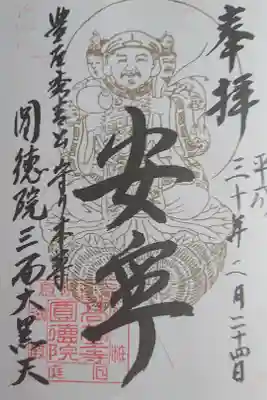 奉拝
平成三十年八月二十四日
安寧
豊臣秀吉公守り本尊
圓徳院三面大黒天
高台寺
圓徳院